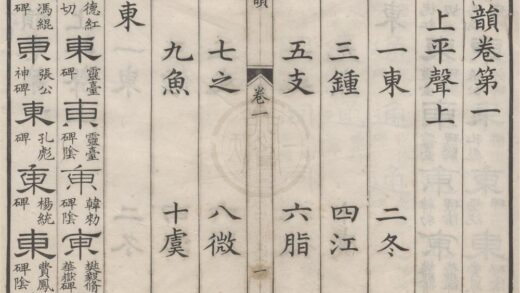 韻卷第一
上平聲上
一東 二冬
三鍾 四江
五支 六脂
韻 卷一 一
七之 八微
九魚 十虞
東
德紅切 東 靈臺碑 東 靈臺碑陰 東 韓勑碑陰 東 樊毅脩華嶽碑
馮緄碑 東 張公神碑 東 孔彪碑 東 楊統碑 東 費鳳碑陰